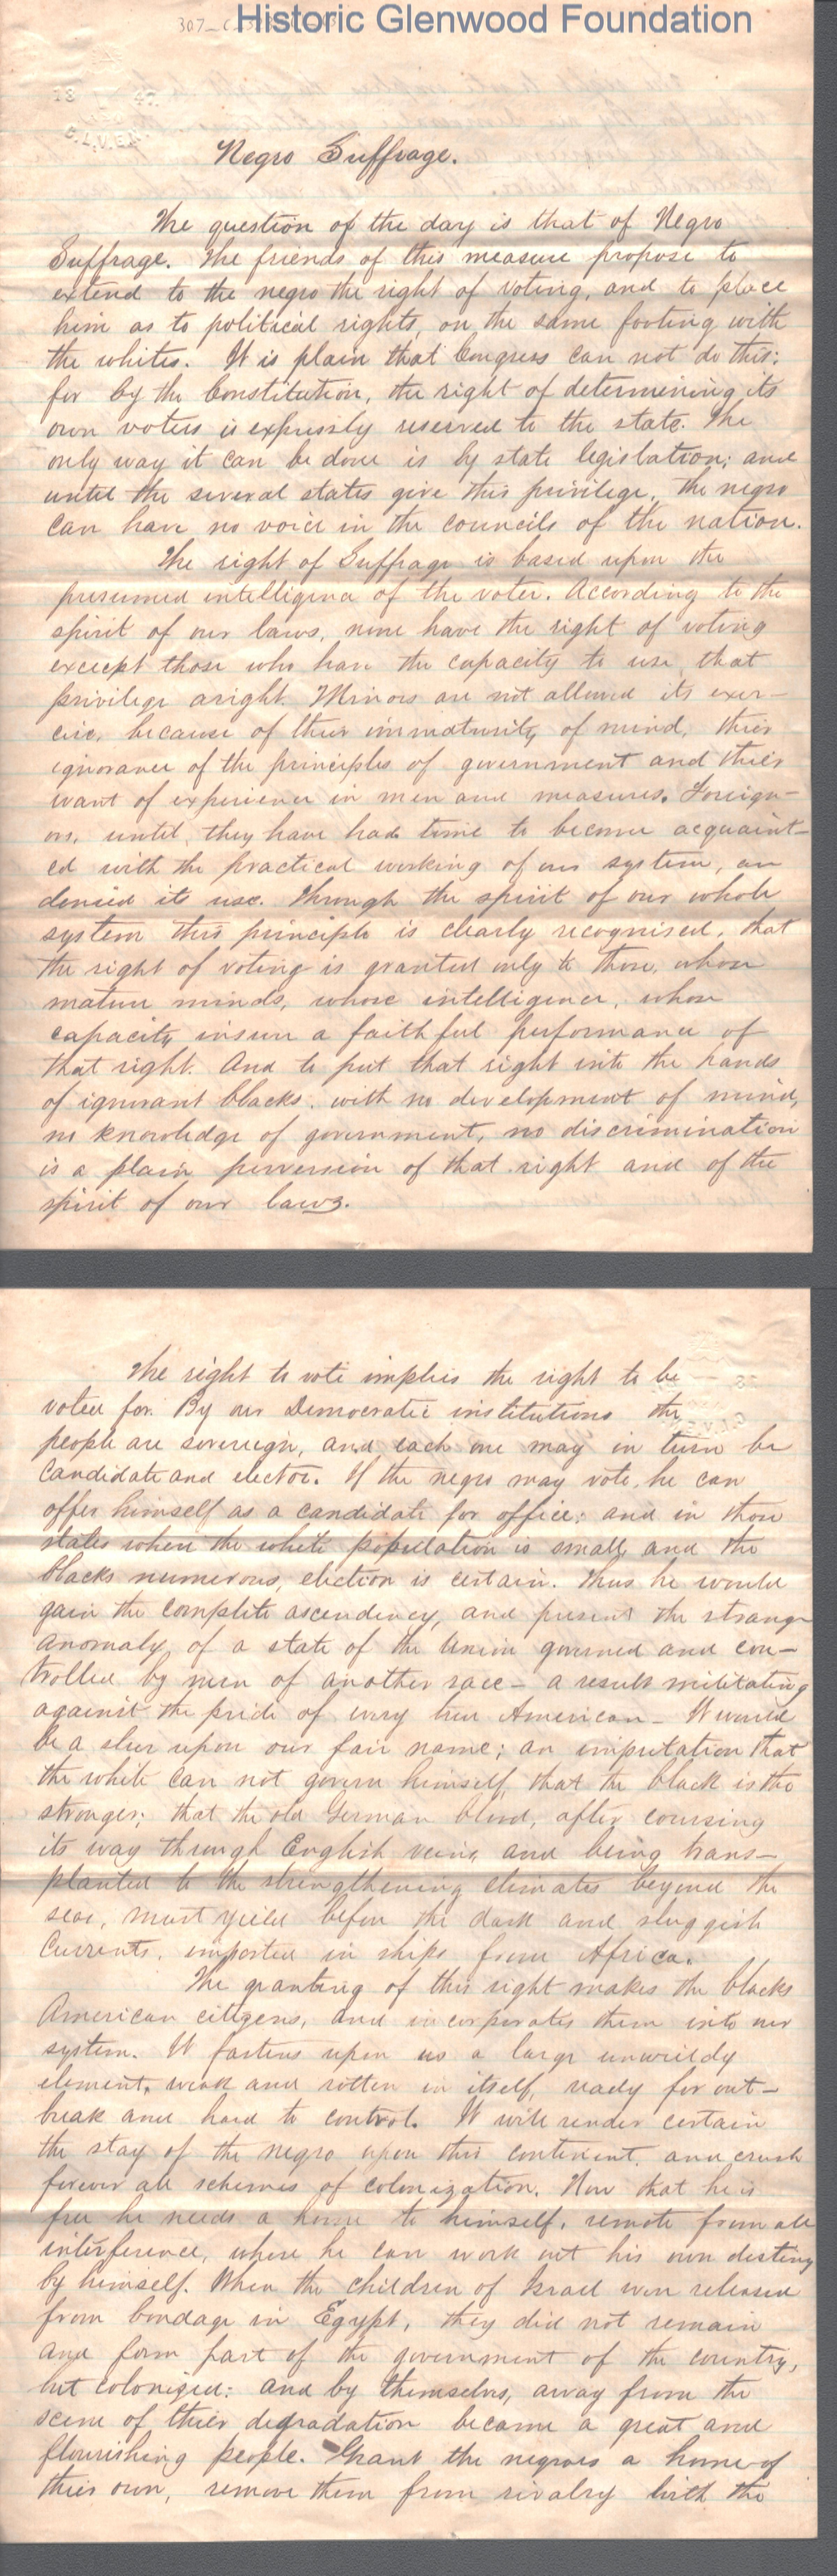 307-C-
Historic Glenwood Foundation
18 47
Negro Suffrage.
The question of the day is that of Negro
Suffrage. The friends of this measure propose to
extend to the negro the right of voting, and to place
him as to political rights, on the same footing with
the whites. It is plain that Congress can not do this;
for by the Constitution, the right of determining its
own voters is expressly reserved to the state. The
only way it can be done is by state legislation; and
until the several states give this privilege, the negro
can have no voice in the councils of the nation.
The right of Suffrage is based upon the
presumed intelligence of the voter. According to the
spirit of our laws, none have the right of voting
except those who have the capacity to use that
privilege aright. Minors are not allowed its exer-
cise, because of their immaturity of mind, their
ignorance of the principles of government and their
want of experience in men and measures. Foreign-
ers, until they have had time to become acquaint-
ed with the practical working of our system, are
denied its use. Through the spirit of our whole
system this principle is clearly recognised, that
the right of voting is granted only to those, whose
mature minds, whose intelligence, whose
capacity insure a faithful performance of
that right. And to put that right into the hands
of ignorant blacks, with no development of mind,
no knowledge of government, no discrimination
is a plain perversion of that right and of the
spirit of our laws.
The right to vote implies the right to be
voted for. By our Democratic institutions the
people are sovereign, and each one may in turn be
candidate and elector. If the negro may vote, he can
offer himself as a candidate for office; and in those
states where the white population is small, and the
blacks numerous, election is certain. Thus he would
gain the complete ascendency, and present the strange
anomaly of a state of the Union governed and con-
trolled by men of another race - a result militating
against the pride of every true American - It would
be a slur upon our fair name; an imputation that
the white can not govern himself, that the black is the
stronger; that the old German blood, after coursing
its way through English veins, and being trans-
planted to the strengthening climates beyond the
seas, must yield before the dark and sluggish
currents, imported in ships from Africa.
The granting of this right makes the blacks
American citizens, and incorporates them into our
system. It fastens upon us a large unwieldy
element, weak and rotten in itself, ready for out-
break and hard to control. It will render certain
the stay of the negro upon this continent, and crush
forever all schemes of colonization. Now that he is
free he needs a home to himself, remote from all
interference, where he can work out his own destiny
by himself. When the children of Israel were released
from bondage in Egypt, they did not remain
and form part of the government of the country,
but colonized: and by themselves, away from the
scene of their degradation became a great and
flourishing people. Grant the negroes a home of
their own, remove them from rivalry with the